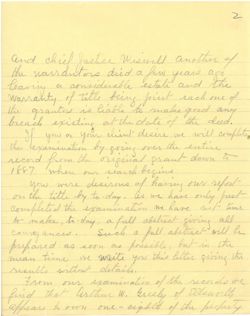 2
And Chief Justice Wiswell another of
the warrantors died a few years ago
leaving a considerable estate and the
warranty of title being joint each one of
the grantors is liable to make good any
breach existing at the date of the deed.
If you or your client desire we will complete
the examination by going over the entire
record from the original grant down to
1887 when our search begins.
You were desirous of having our report
on the title by to-day. As we have only just
completed the examination we have not time
to make, to-day, a full abstract giving all
conveyances. Such a full abstract will be
prepared as soon as possible, but in the
mean time we write you this letter giving the
results without details.
From our examination of the records we
find that Arthur W. Greely of Ellsworth
appears to own one-eighth of the property